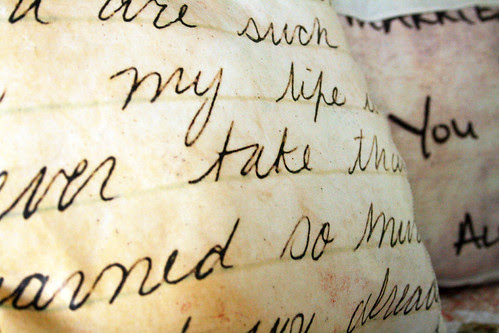 are such
my life
ever take tha
arned so mu
you alread
MARRIE
You
AL